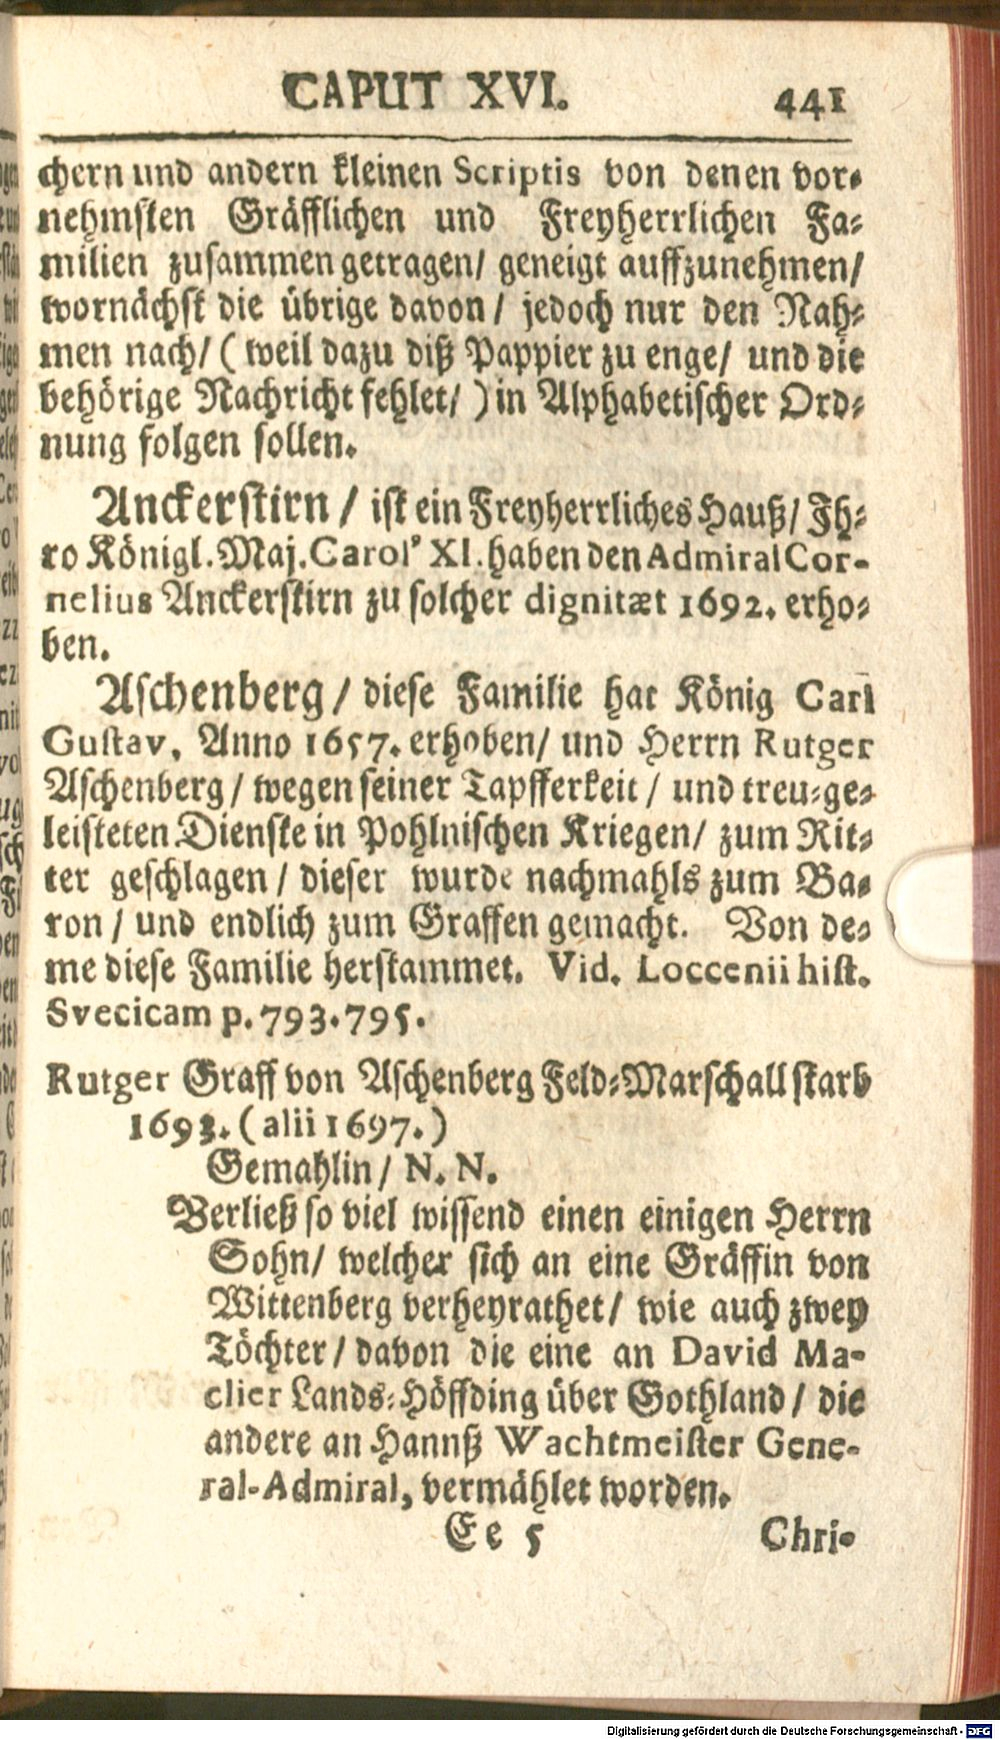 CAPUT XVI. 441
chern und andern kleinen Scriptis von denen vor-
nehmsten Gräfflichen und Freyherrlichen Fa-
milien zusammen getragen/ geneigt auffzunehmen/
wornächst die übrige davon / jedoch nur den Nah-
men nach/ ( weil dazu diß Pappier zu enge/ und die
behörige Nachricht fehlet/ ) in Alphabetischer Ord-
nung folgen sollen.
Anckerstirn / ist ein Freyherrliches Hauß/ Ih-
ro Königl. Maj. Carol' XI. haben den Admiral Cor-
nelius Anckerstirn zu solcher dignitæt 1692. erho-
ben.
Aschenberg / diese Familie hat König Carl
Gustav, Anno 1657. erhoben/ und Herrn Rutger
Aschenberg / wegen seiner Tapfferkeit / und treu-ge-
leisteten Dienste in Pohlnischen Kriegen/ zum Rit-
ter geschlagen / dieser wurde nachmahls zum Ba-
ron / und endlich zum Graffen gemacht. Von de-
me diese Familie herstammet. Vid. Loccenii hist.
Svecicam p. 793. 795.
Rutger Graff von Aschenberg Feld-Marschall starb
1693. ( alii 1697. )
Gemahlin / N. N.
Verließ so viel wissend einen einigen Herrn
Sohn/ welcher sich an eine Gräffin von
Wittenberg verheyrathet/ wie auch zwey
Töchter / davon die eine an David Ma-
clier Lands-Höffding über Gothland / die
andere an Hannß Wachtmeister Gene-
ral-Admiral, vermählet worden.
Ee 5 Chri-
Digitalisierung gefördert durch die Deutsche Forschungsgemeinschaft - DFG